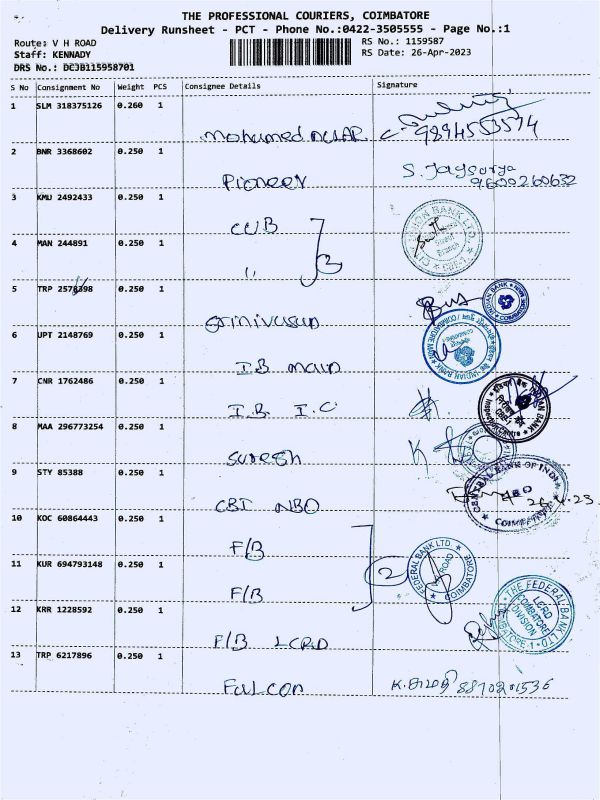 THE PROFESSIONAL COURIERS, COIMBATORE
Delivery Runsheet - PCT - Phone No.:0422-3505555 - Page No.:1
Route: V H ROAD
RS No.: 1159587
Staff: KENNADY
RS Date: 26-Apr-2023
DRS No.: DCJB115958701
S No Consignment No Weight PCS Consignee Details Signature
1 SLM 318375126 0.260 1
Mohamed 9894553574
2 BNR 3368602 0.250 1
Pioneer S. Jaysurya
9600260632
3 KMU 2492433 0.250 1
CUB
4 MAN 244891 0.250 1
" 2
5 TRP 2578398 0.250 1
Srinivasan
6 UPT 2148769 0.250 1
I.B main
7 CNR 1762486 0.250 1
I.B. I.C
8 MAA 296773254 0.250 1
Suresh
9 STY 85388 0.250 1
CBI NBO
CENTRAL BANK OF INDIA
10 KOC 60864443 0.250 1
F/B
11 KUR 694793148 0.250 1
F/B 2
FEDERAL BANK LTD.
COIMBATORE
12 KRR 1228592 0.250 1
F/B LCRD
THE FEDERAL BANK LTD
LCRD
COIMBATORE
DIVISION
13 TRP 6217896 0.250 1
Falcon